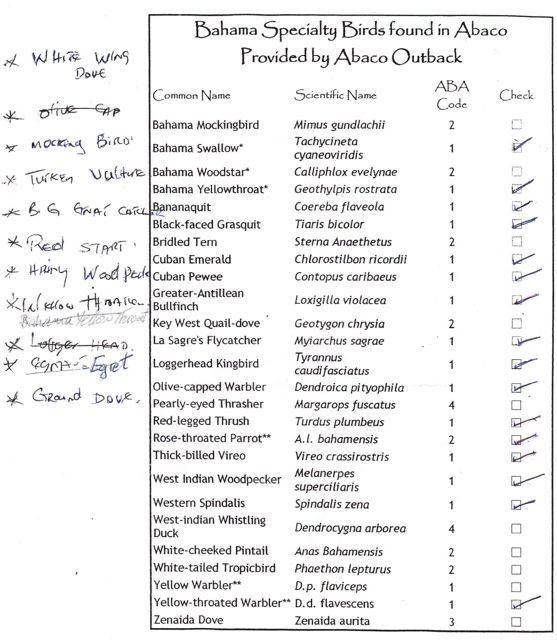 Bahama Specialty Birds found in Abaco
Provided by Abaco Outback
Common Name Scientific Name ABA Code Check
Bahama Mockingbird Mimus gundlachii 2
Bahama Swallow* Tachycineta cyaneoviridis 1
Bahama Woodstar* Calliphlox evelynae 2
Bahama Yellowthroat* Geothylpis rostrata 1
Bananaquit Coereba flaveola 1
Black-faced Grasquit Tiaris bicolor 1
Bridled Tern Sterna Anaethetus 2
Cuban Emerald Chlorostilbon ricordii 1
Cuban Pewee Contopus caribaeus 1
Greater-Antillean Bullfinch Loxigilla violacea 1
Key West Quail-dove Geotygon chrysia 2
La Sagre's Flycatcher Myiarchus sagrae 1
Loggerhead Kingbird Tyrannus caudifasciatus 1
Olive-capped Warbler Dendroica pityophila 1
Pearly-eyed Thrasher Margarops fuscatus 4
Red-legged Thrush Turdus plumbeus 1
Rose-throated Parrot** A.l. bahamensis 2
Thick-billed Vireo Vireo crassirostris 1
West Indian Woodpecker Melanerpes superciliaris 1
Western Spindalis Spindalis zena 1
West-indian Whistling Duck Dendrocygna arborea 4
White-cheeked Pintail Anas Bahamensis 2
White-tailed Tropicbird Phaethon lepturus 2
Yellow Warbler** D.p. flaviceps 1
Yellow-throated Warbler** D.d. flavescens 1
Zenaida Dove Zenaida aurita 3
* WHITE WING
DOVE
* OLIVE CAP
* MOCKING BIRD
* TURKEY Vulture
* B G GNAT CATCHER
* Red START
* HAIRY Woodpeck
Bahama Yellow Throat
* LOGGER HEAD
Egret
* GROUND DOVE